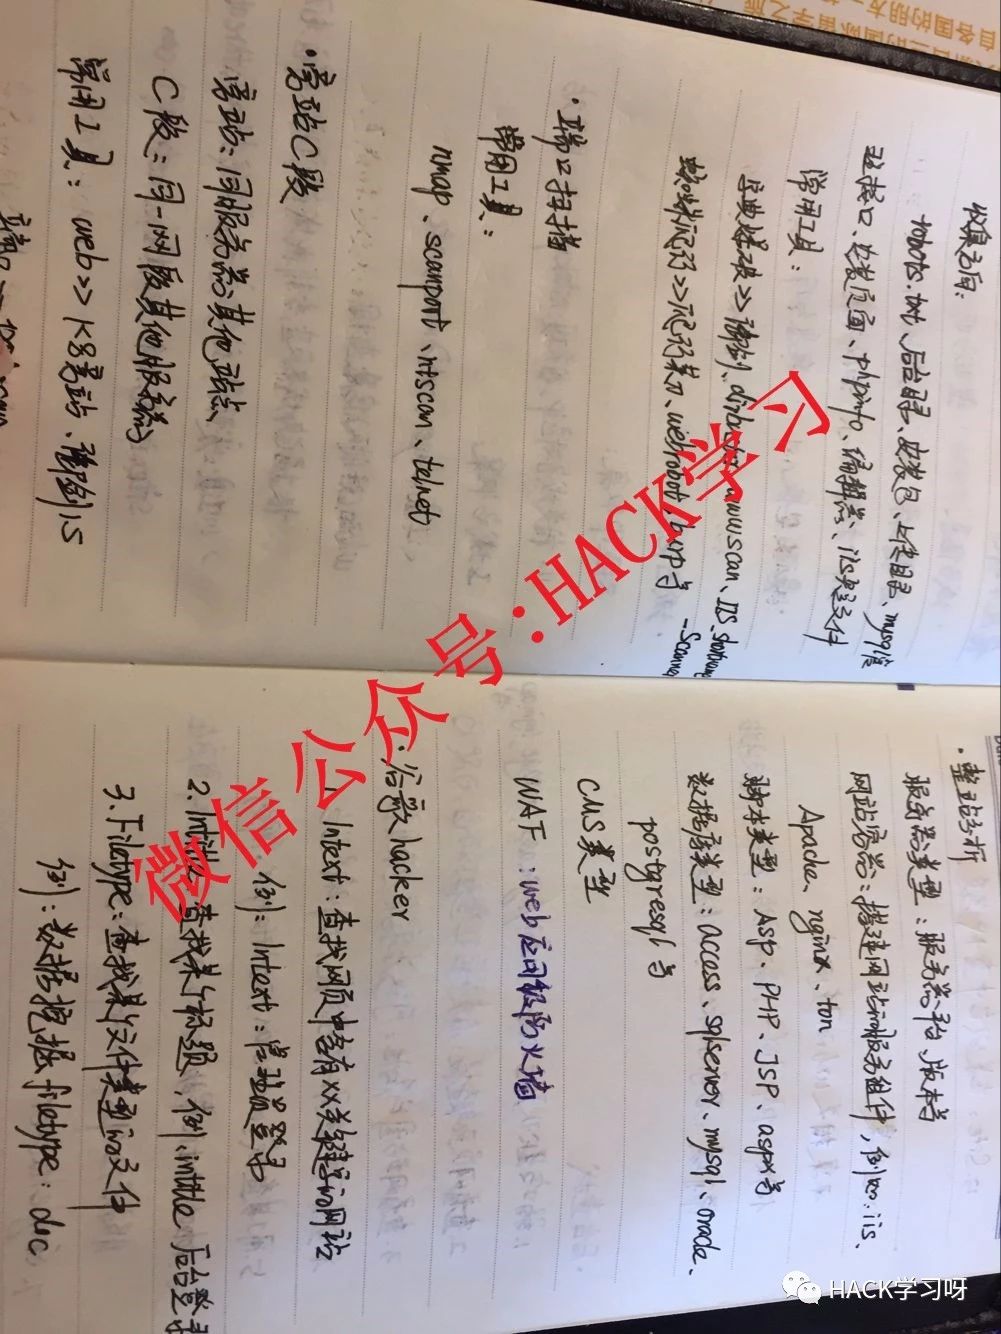 收集方向:
robots.txt、后台目录、安装包、上传目录、mysql管
理接口、安装页面、phpinfo、编辑器、iis短文件
常用工具:
字典爆破>>御剑、dirbuster、wwwscan、IIS_shortname
-Scanner
蜘蛛爬行>>爬行菜刀、webrobot、burp等
·端口扫描
常用工具:
nmap、scanport、ntscan、telnet
·旁站C段
旁站:同服务器其他站点
C段:同一网段其他服务器
常用工具:web>>K8旁站、御剑1.5
端口
·整站分析
服务器类型:服务器平台、版本等
网站容器:搭建网站的服务组件,例如:iis、
Apache、nginx、tom
脚本类型:Asp、PHP、JSP、aspx等
数据库类型:access、sqlserver、mysql、oracle、
postgresql等
CMS类型
WAF:web应用级防火墙
·谷歌hacker
1、Intext:查找网页中含有xx关键字的网站
例:Intext:管理员登录
2.Intitle:查找某个标题,例、intitle 后台登录
3.Filetype:查找某个文件类型的文件
例:数据挖掘filetype:doc
微信公众号:HACK学习
HACK学习呀